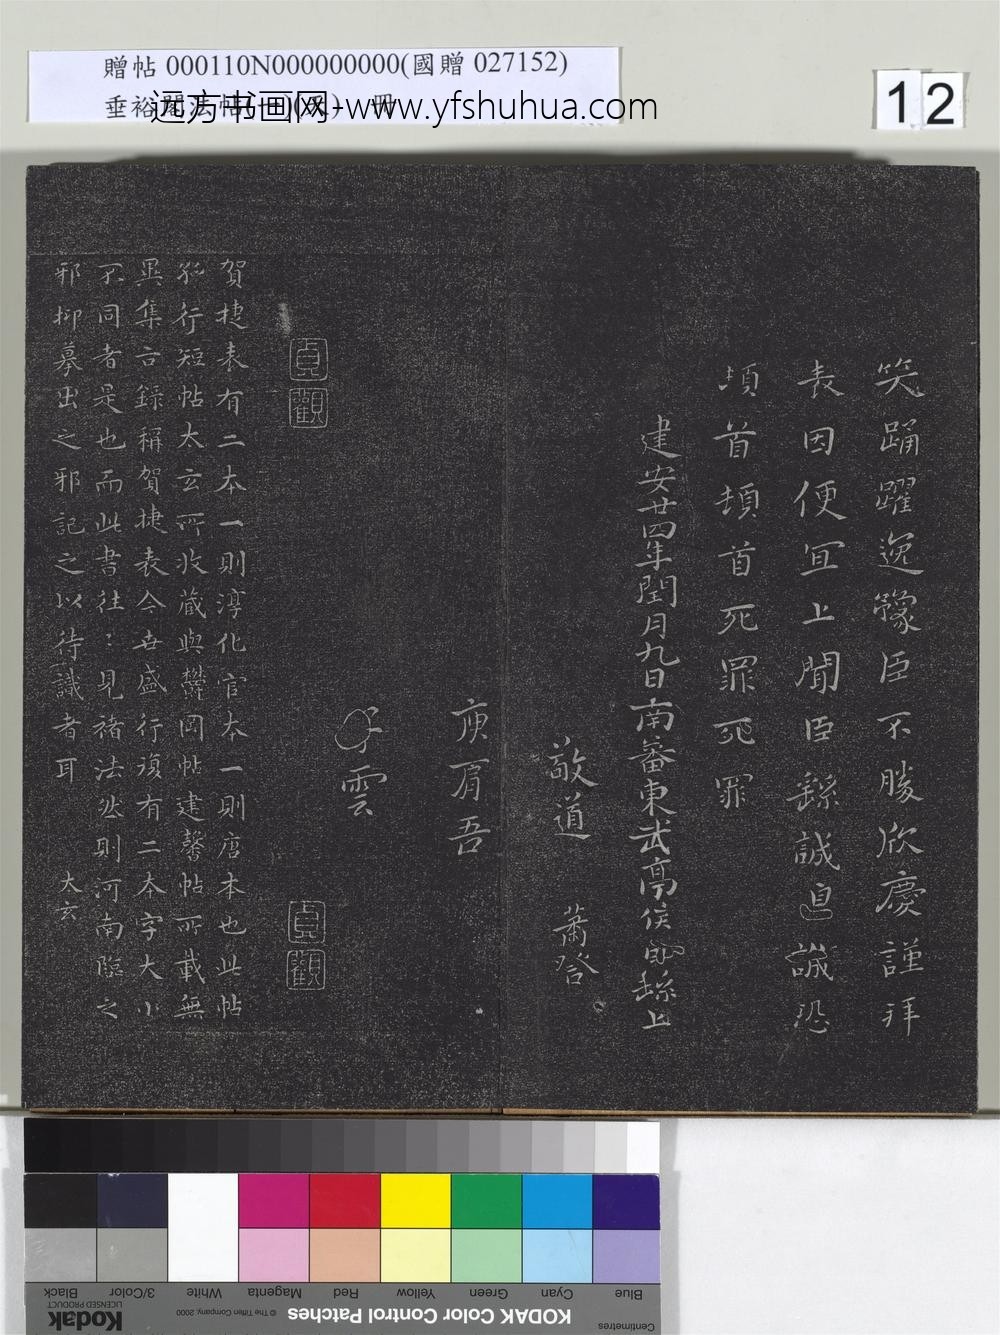 贈帖 000110N000000000(國贈 027152)
垂裕閣法帖
远方书画网-www.yfshuhua.com
12
笑踊躍逸豫臣不勝欣慶謹拜
表因便宜上聞臣繇誠惶誠恐
頓首頓首死罪死罪
建安廿四年閏月九日南蕃東武亭侯臣繇上
敬道
庾肩吾
子雲
貞觀
貞觀
賀捷表有二本一則淳化官本一則唐本也此帖
行短帖大玄所收藏與鬱岡帖建馨帖所載無
異集古錄稱賀捷表今世盛行復有二本字大小
不同者是也而此書往〻見褚法然則河南臨之
邪抑摹出之邪記之以待識者耳 大玄
Blue
Cyan
Green
Yellow
Red
Magenta
White
3/Color
Black
Centimetres
KODAK Color Control Patches
© The Tiffen Company, 2000
Kodak
LICENSED PRODUCT